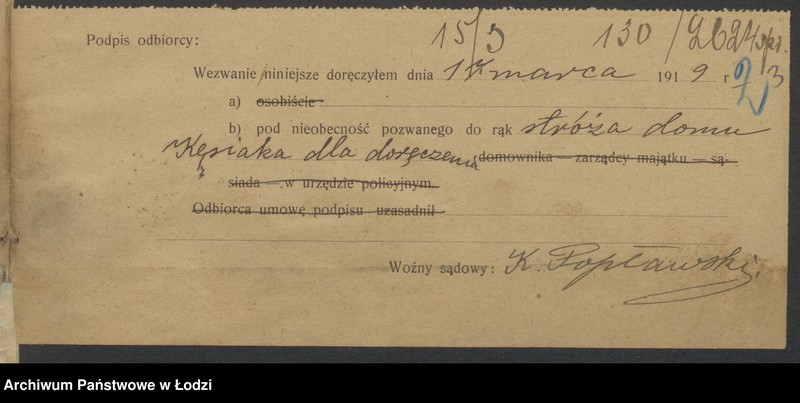 Podpis odbiorcy:
15/3 130/2624
Wezwanie niniejsze doręczyłem dnia 17 marca 1919 r
3
a) osobiście
b) pod nieobecność pozwanego do rąk stróża domu
Kęsiaka dla doręczenia domownika — zarządcy majątku — są-
siada — w urzędzie policyjnym.
Odbiorca umowę podpisu uzasadnił
Woźny sądowy: K. Popławski.
Archiwum Państwowe w Łodzi